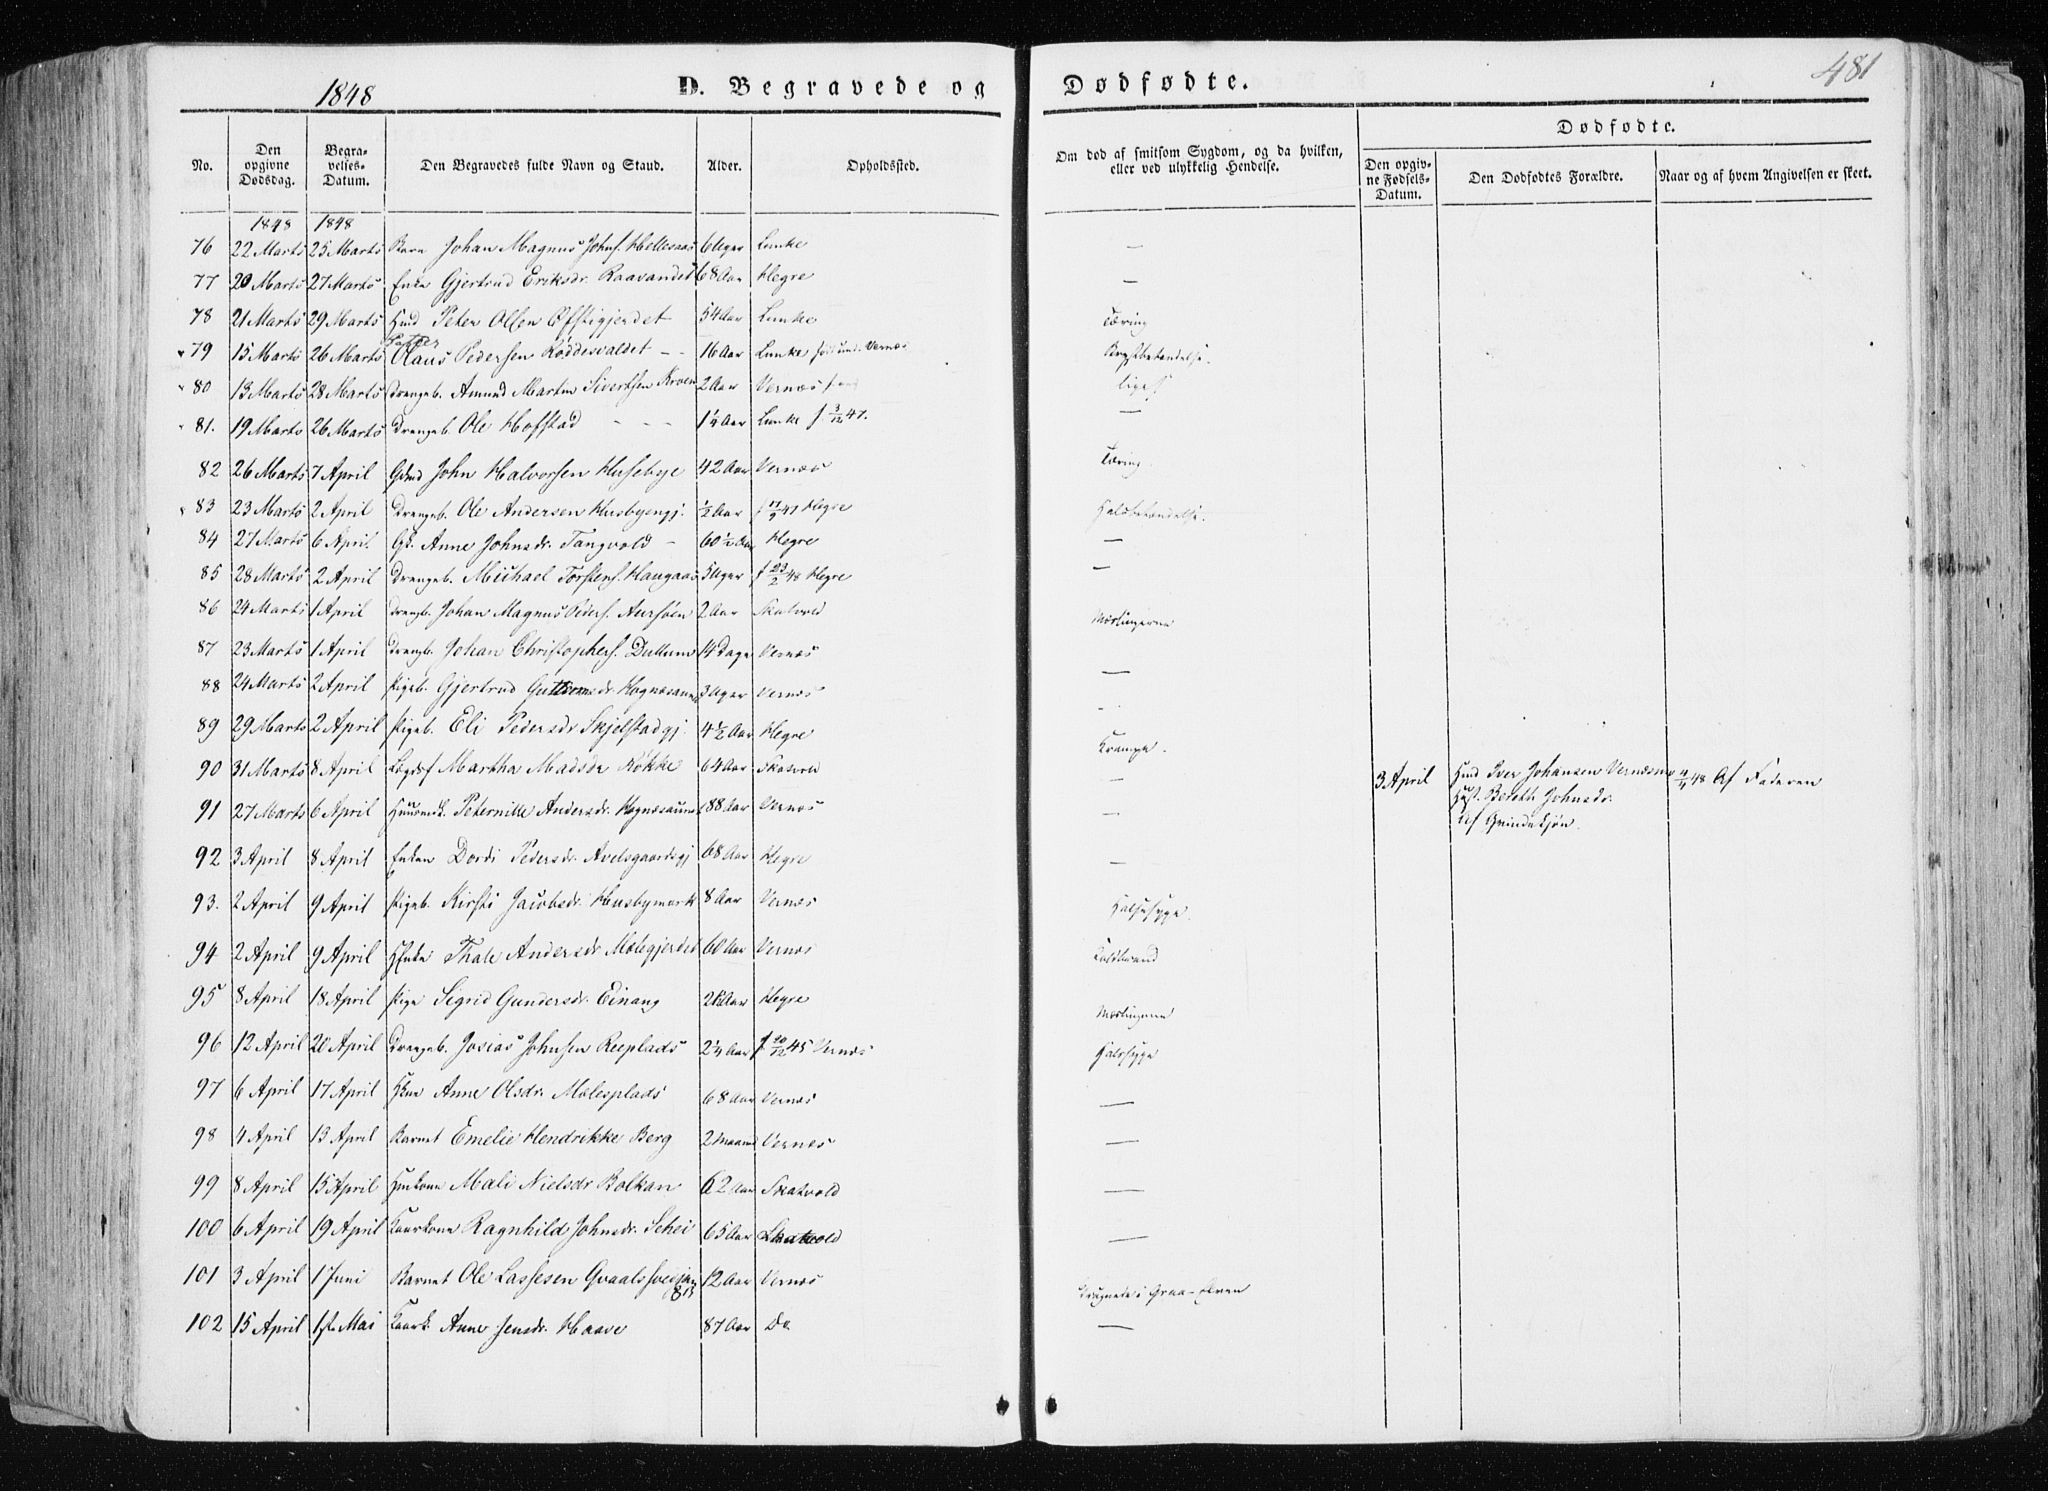 1848 D. Begravede og Dødfødte. 481
No. Den opgivne Dødsdag. Begravelses-Datum. Den Begravedes fulde Navn og Stand. Alder. Opholdssted. Om død af smitsom Sygdom, og da hvilken, eller ved ulykkelig Hendelse. Dødfødte. Den opgivne Fødsels-Datum. Den Dødfødtes Forældre. Naar og af hvem Angivelsen er skeet.
1848 1848
76 22 Marts 25 Marts Barn Johan Magnus Johns. Hellesaas 6 Uger Lunke —
77 20 Marts 27 Marts Enke Gjertrud Eriksdr. Raavandet 68 Aar Hegre —
78 21 Marts 29 Marts Hmd Peter Olsen Øfstigjerdet 54 Aar Lunke Tæring
79 15 Marts 26 Marts Olaus Pedersen Røddesvaldet - - 16 Aar Lunke Vernæs Brystbetændelse.
80 13 Marts 28 Marts Drengeb. Amund Martin Sivertsen Kroen 2 Aar Vernæs liges
81. 19 Marts 26 Marts Drengeb. Ole Hofstad - - - 1¼ Aar Lunke f. 3/12 47. —
82 26 Marts 7 April Gdmd John Halvorsen Husebye 42 Aar Vernæs Tæring
83 23 Marts 2 April Drengeb. Ole Andersen Husbyengj. ½ Aar f 17/9 47 Hegre Halsbetændelse.
84 27 Marts 6 April. Gk. Anne Johnsdr. Tangvold - 60½ Aar Hegre —
85 28 Marts 2 April Drengeb. Michael Torstens. Haugaas 5 Uger f 23/2 48 Hegre —
86 24 Marts 1 April Drengb. Johan Magnus Peders. Aursøen 2 Aar Skatvold Mæslingerne
87 23 Marts 1 April Drengb. Johan Christophers. Dullum 14 Dage Vernæs —
88 24 Marts 2 April Pigeb. Gjertrud Guttormsdr. Hognæsaunet 3 Uger Vernæs - -
89 29 Marts 2 April Pigeb. Eli Pedersdr Skjelstadgj. 4½ Aar Hegre Krampe.
90 31 Marts 8 April Lægdsf Martha Madsdr Røkke 64 Aar Skatvold — 3 April Hmd Iver Johansen Vernæsmo 4/4 48 Af Faderen
Hust. Bereth Johnsdr.
af Grindeksjøn.
91 27 Marts 6 April Huusmk. Peternille Andersdr. Hognæsaunet 88 Aar Vernæs —
92 3 April 8 April Enken Dordi Pedersdr. Avelsgaardsgj 68 Aar Hegre —
93. 2 April 9 April Pigeb. Kirsti Jacobsdr. Husbymark 8 Aar Vernæs Halssyge.
94 2 April 9 April HEnke Thale Andersdr Molegjerdet 60 Aar Vernæs Koldbrand
95 8 April 18 April Pige Sigrid Gundersdr. Einang Aar Hegre Mæslingerne
96 12 April 20 April Drengeb. Josias Johnsen Reeplads 2¼ Aar f. 20/12 45 Vernæs Halssyge
97 6 April 17 April Anne Olsdr. Molesplads 68 Aar Vernæs —
98 4 April 13 April Barnet Emelie Hendrikke Berg 2 Maaned Vernæs —
99 8 April 15 April Huskone Mali Nielsdr Bolkan 62 Aar Skatvold —
100 6 April 19 April Kaarkone Ragnhild Johnsdr. Schei 65 Aar Skatvold —
101 3 April 1 Juni Barnet Ole Lassesen 12 Aar Vernæs Druknede i Graa-Elven
102 15 April 1ste Mai Kaark. Anne Jensdr. Haave 87 Aar Do —